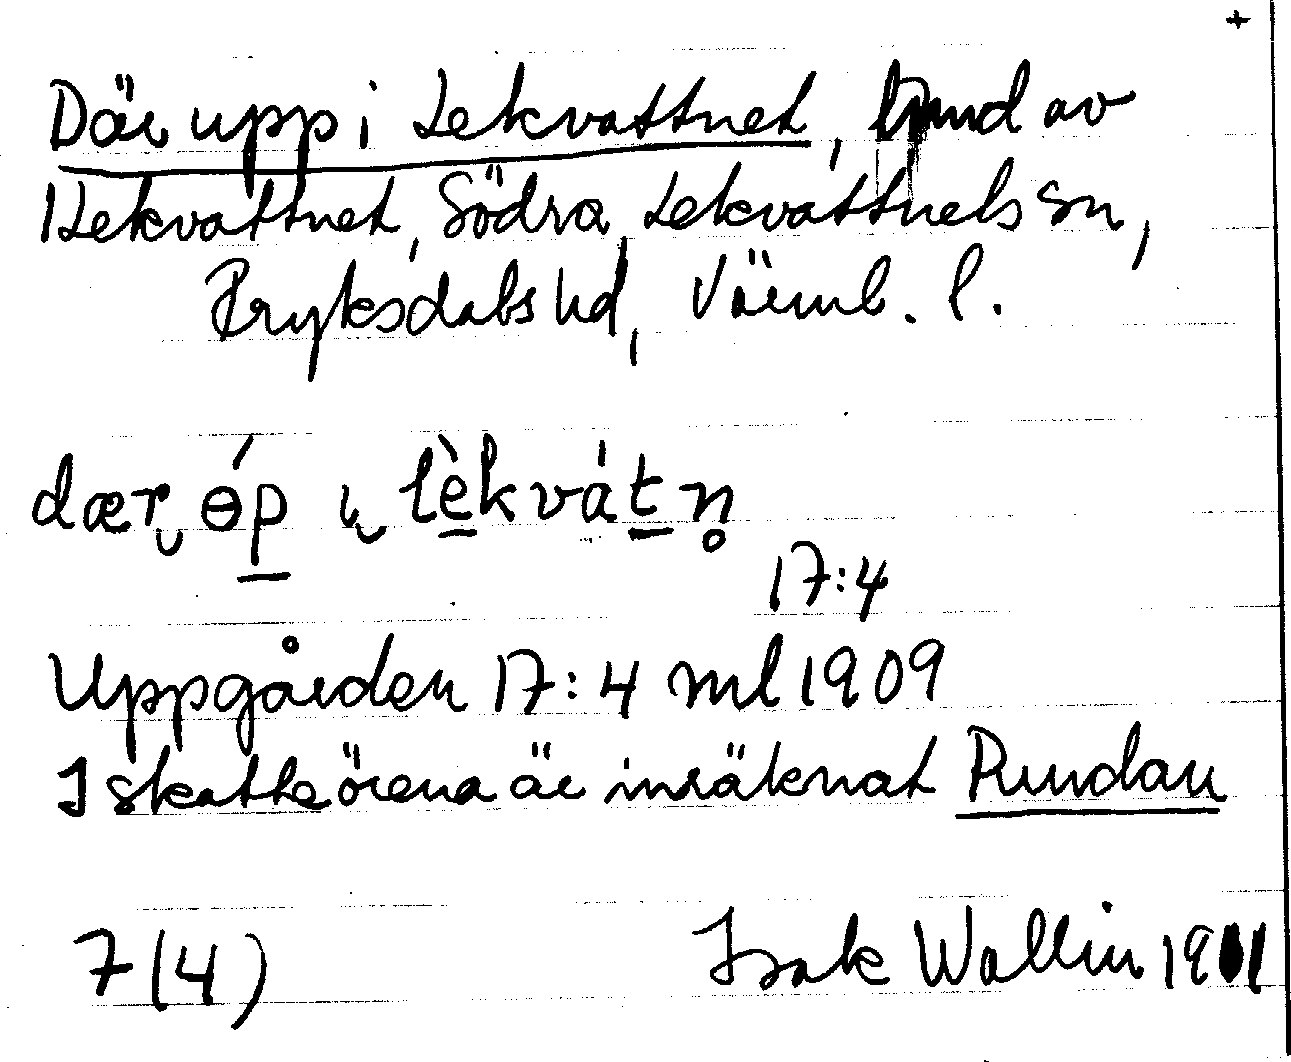 +
Där upp i Lekvattnet, hmd av
1 Lekvattnet, Södra Lekvattnets sn,
Fryksdals hd, Värml. l.
dær ө́p i lèkvátn̥
17:4
Uppgården 17:4 ml 1909
I skattkörena är inräknat Rundau
7(4) Isak Wallin 1911